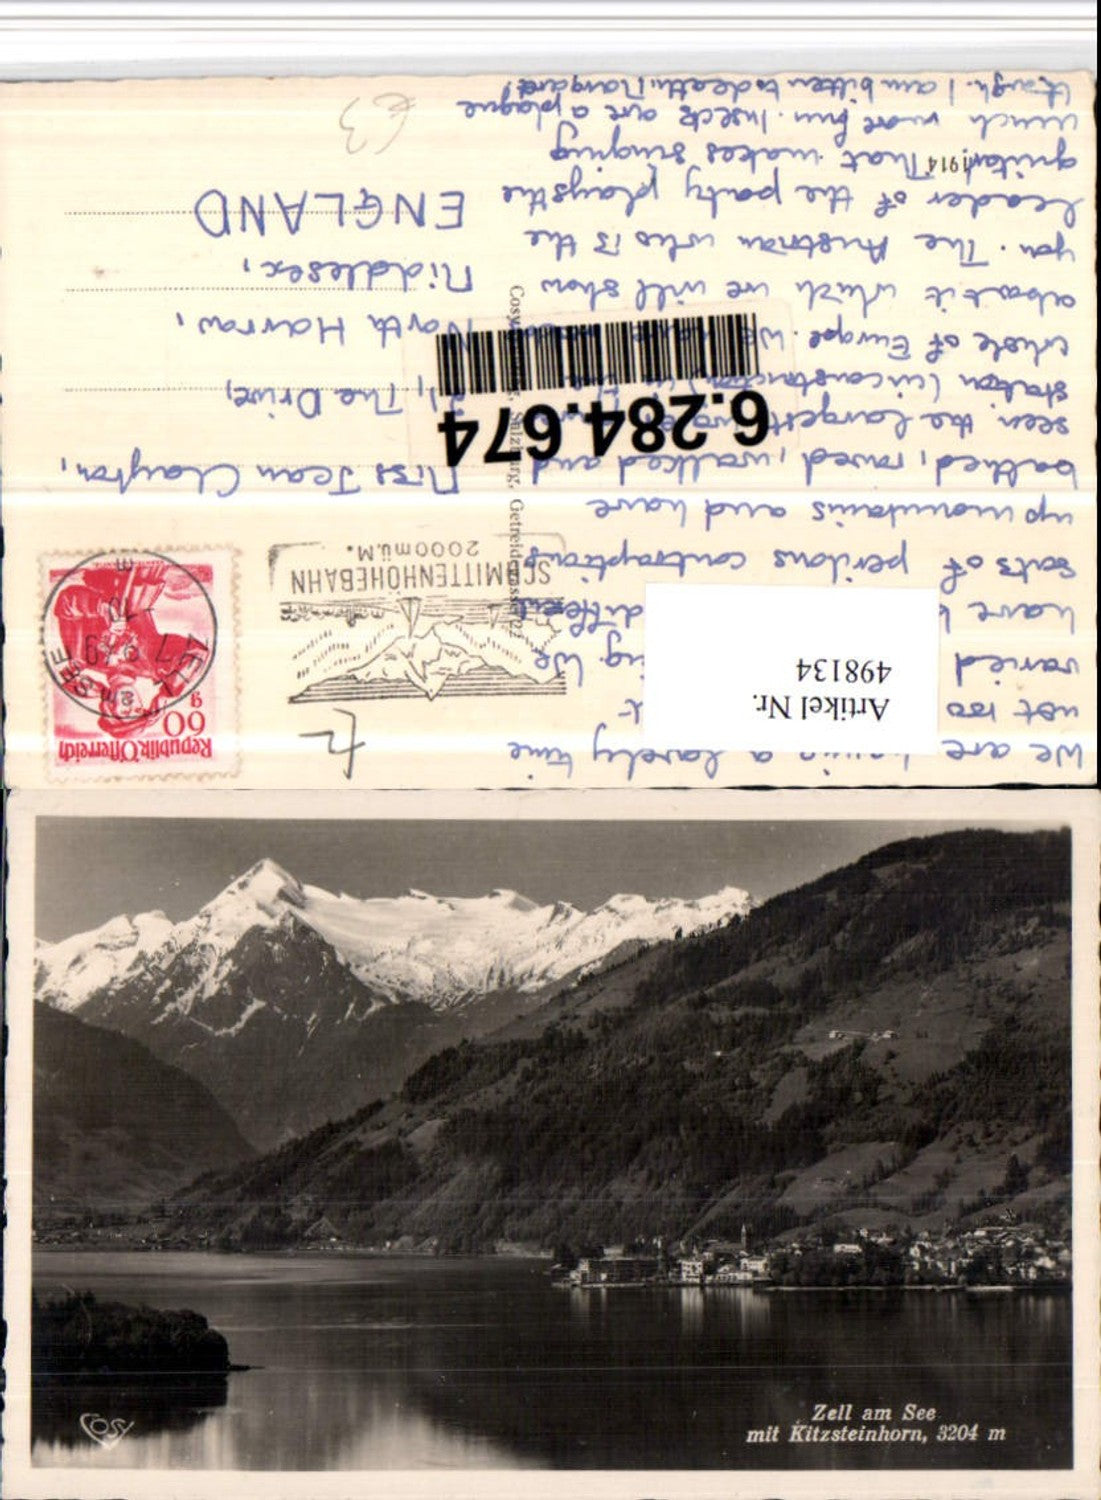 We are a lovely time
not too
varied
have different
sorts of perilous contraptions
up mountains and have
bathed, rowed, walked and
seen the largest
station (in construction) in
whole of Europe. We
about it which we will show
you. The Austrian who is the
leader of the party plays the
guitar. That makes singing
much more fun. Insects are a plague
though. I am bitten to death. Margaret
1914
Artikel Nr.
498134
6.284.674
Cosy Salzburg, Getreidegasse 22
SCHMITTENHÖHEBAHN
2000 m ü.M.
Republik Österreich
60
g
ZELL AM SEE
Miss Jean Clayton,
The Drive,
North Harrow,
Middlesex,
ENGLAND
€3
Zell am See
mit Kitzsteinhorn, 3204 m
COSY